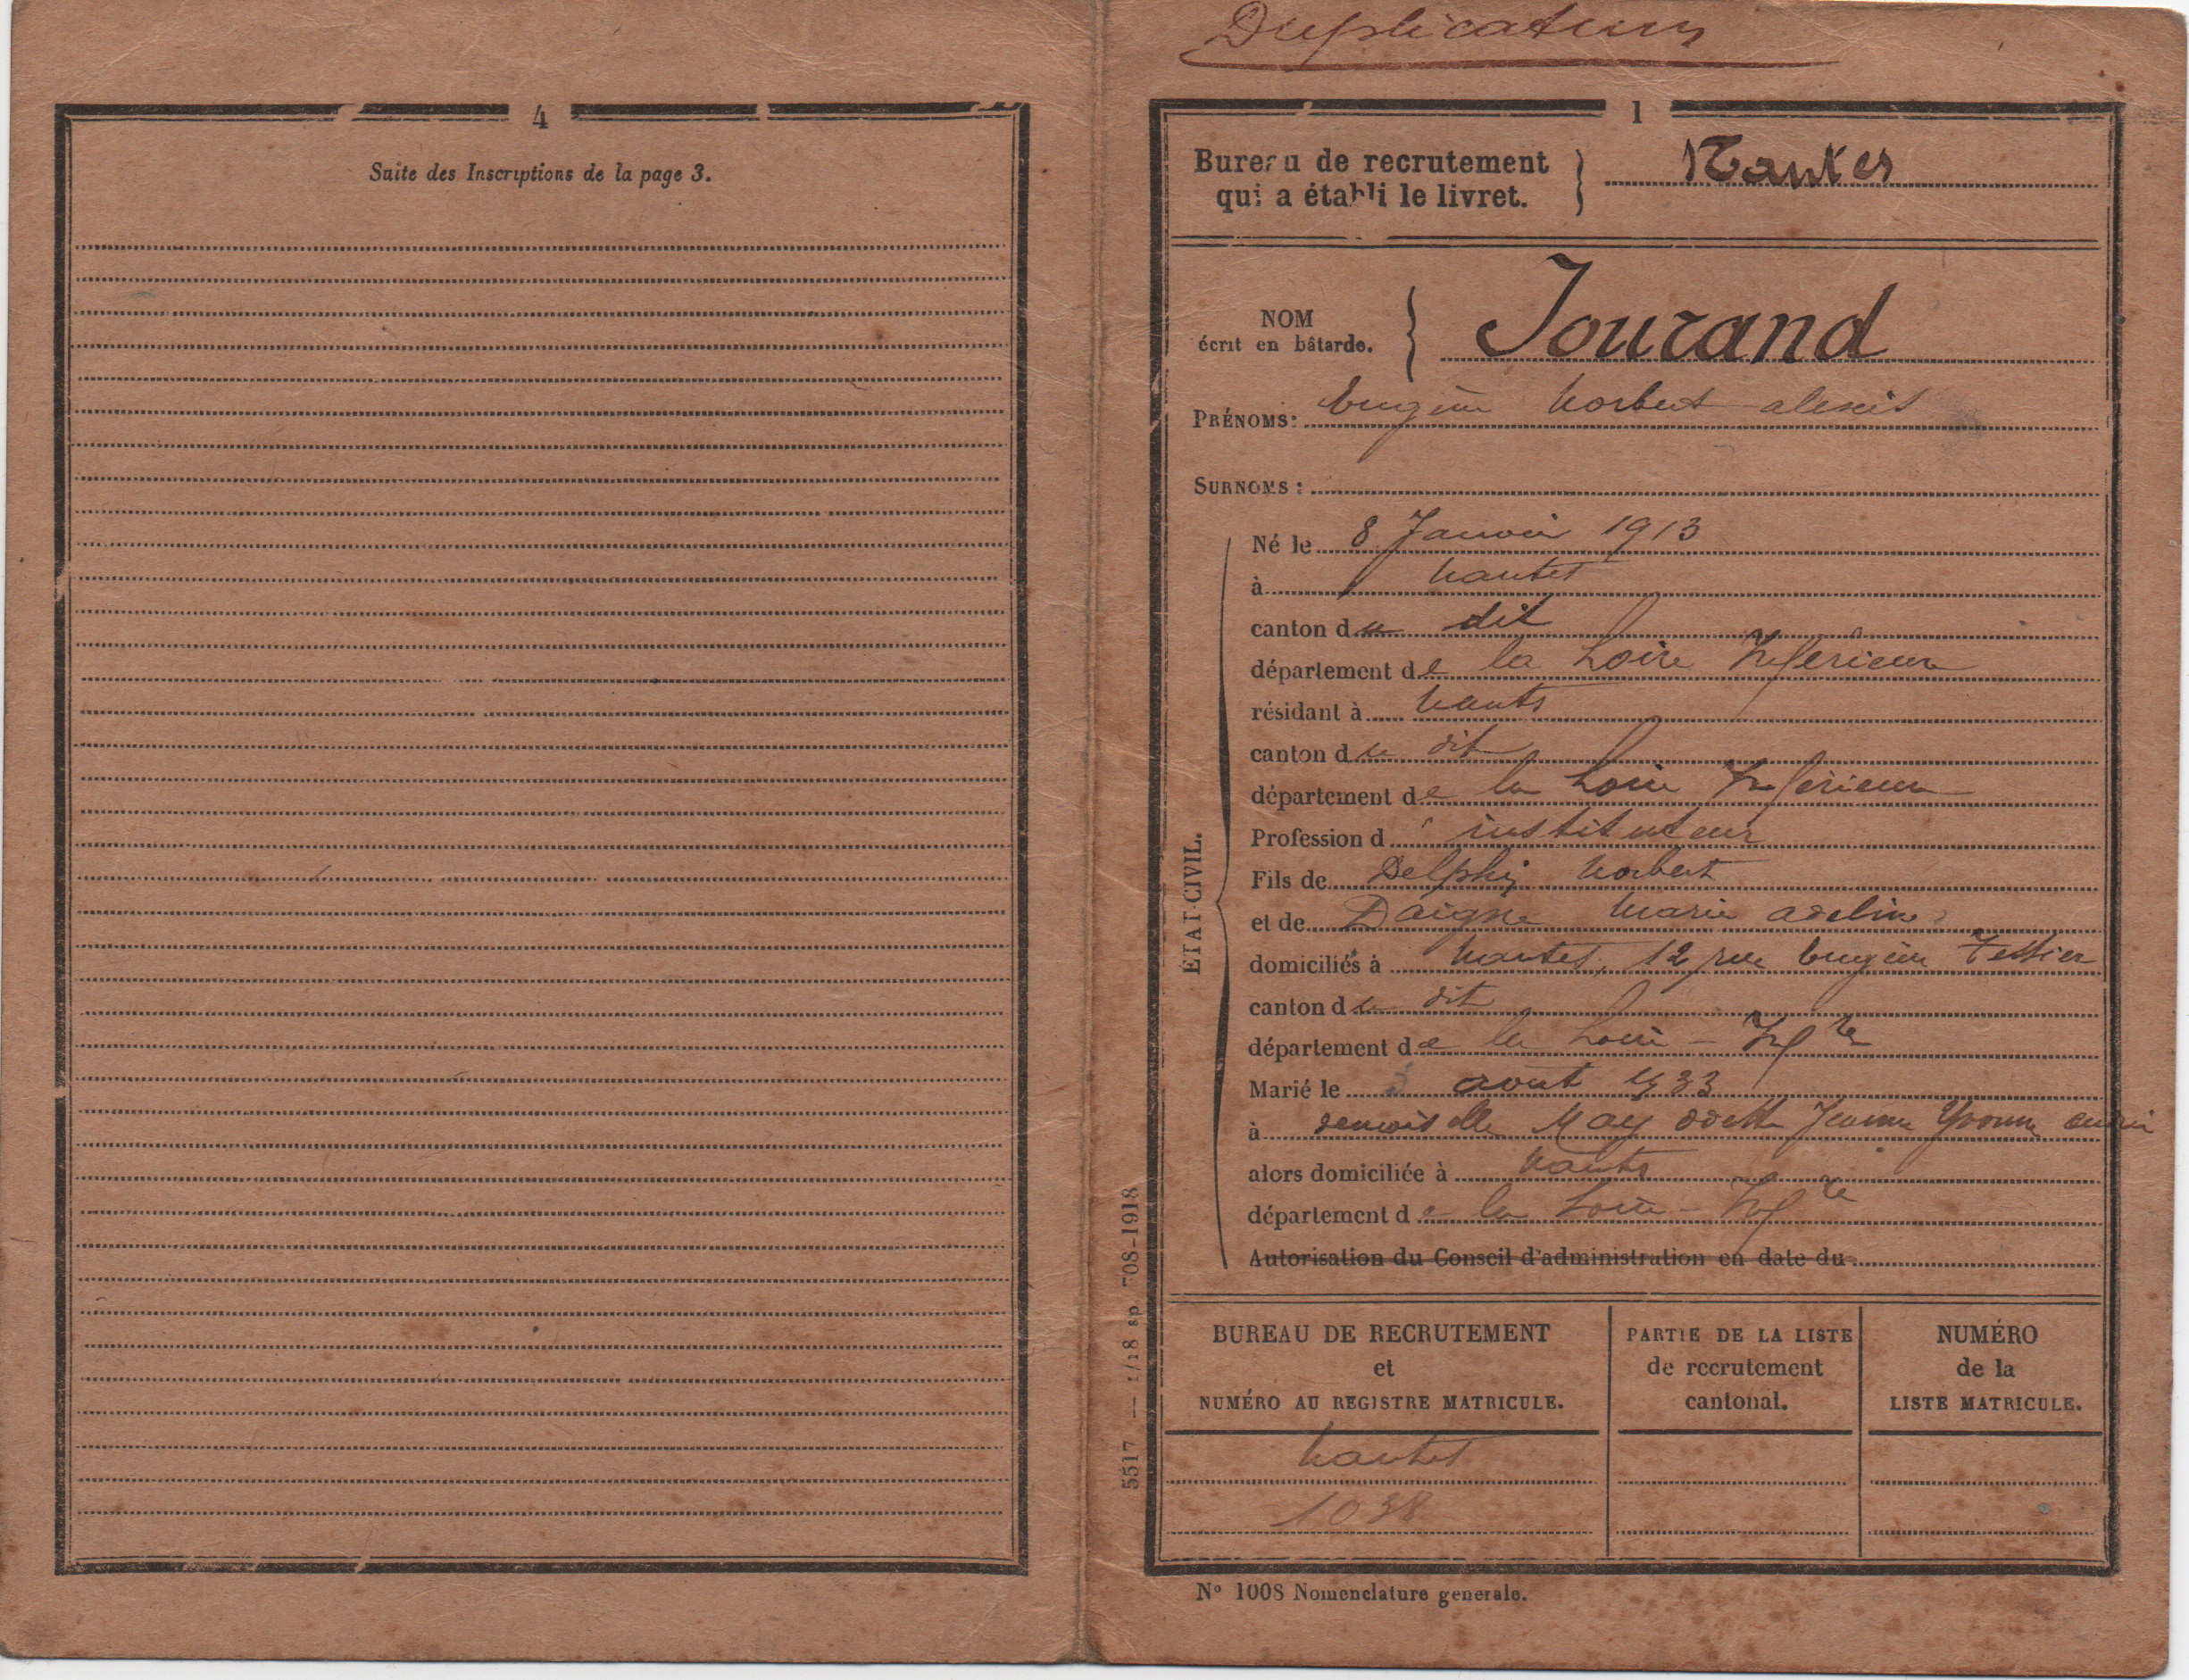 4
Suite des Inscriptions de la page 3.
Duplicatum
1
Bureau de recrutement
qui a établi le livret. } Nantes
NOM
écrit en bâtarde. } Jourand
PRÉNOMS: Eugène Norbert alexis
SURNOMS :
ÉTAT CIVIL.
Né le 8 Janvier 1913
à Nantes
canton du dit
département de la Loire Inférieure
résidant à Nantes
canton du dit
département de la Loire Inférieure
Profession d' instituteur
Fils de Delphin Norbert
et de Daigne Marie adeline
domiciliés à Nantes, 12 rue Eugène Tessier
canton du dit
département de la Loire - Infre
Marié le 3 aout 1933
à demoiselle May odette Jeanne Yvonne
alors domiciliée à Nantes
département de la Loire - Infre
Autorisation du Conseil d'administration en date du
BUREAU DE RECRUTEMENT
et
NUMÉRO AU REGISTRE MATRICULE.
PARTIE DE LA LISTE
de recrutement
cantonal.
NUMÉRO
de la
LISTE MATRICULE.
Nantes
1038
5517 — 1/18 sp 708-1918
No 1008 Nomenclature generale.